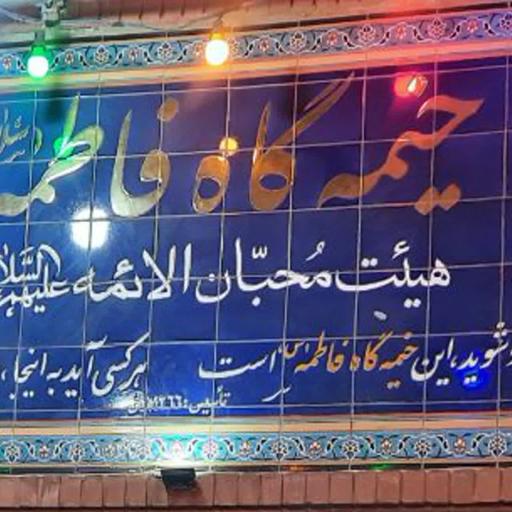 خیمه گاه فاطمه
هیئت مُحبّان الائمه علیهم السَّلام
شوید، این خیمه گاه فاطمه س است هر کسی آید به اینجا،
تأسیس: ۱۳۶۶